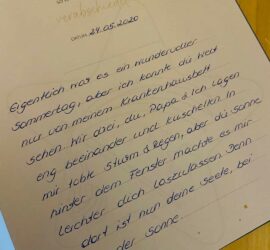 verabschiedet
DATUM 28.05.2020
Eigentlich war es ein wundervoller
Sommertag, aber ich konnte die Welt
nur von meinem Krankenhausbett
sehen. Wir drei, du, Papa & ich lagen
eng beieinander und kuschelten. In
mir tobte Sturm & Regen, aber die Sonne
hinter dem Fenster machte es mir
leichter dich loszulassen. Denn
dort ist nun deine Seele, bei
der Sonne.